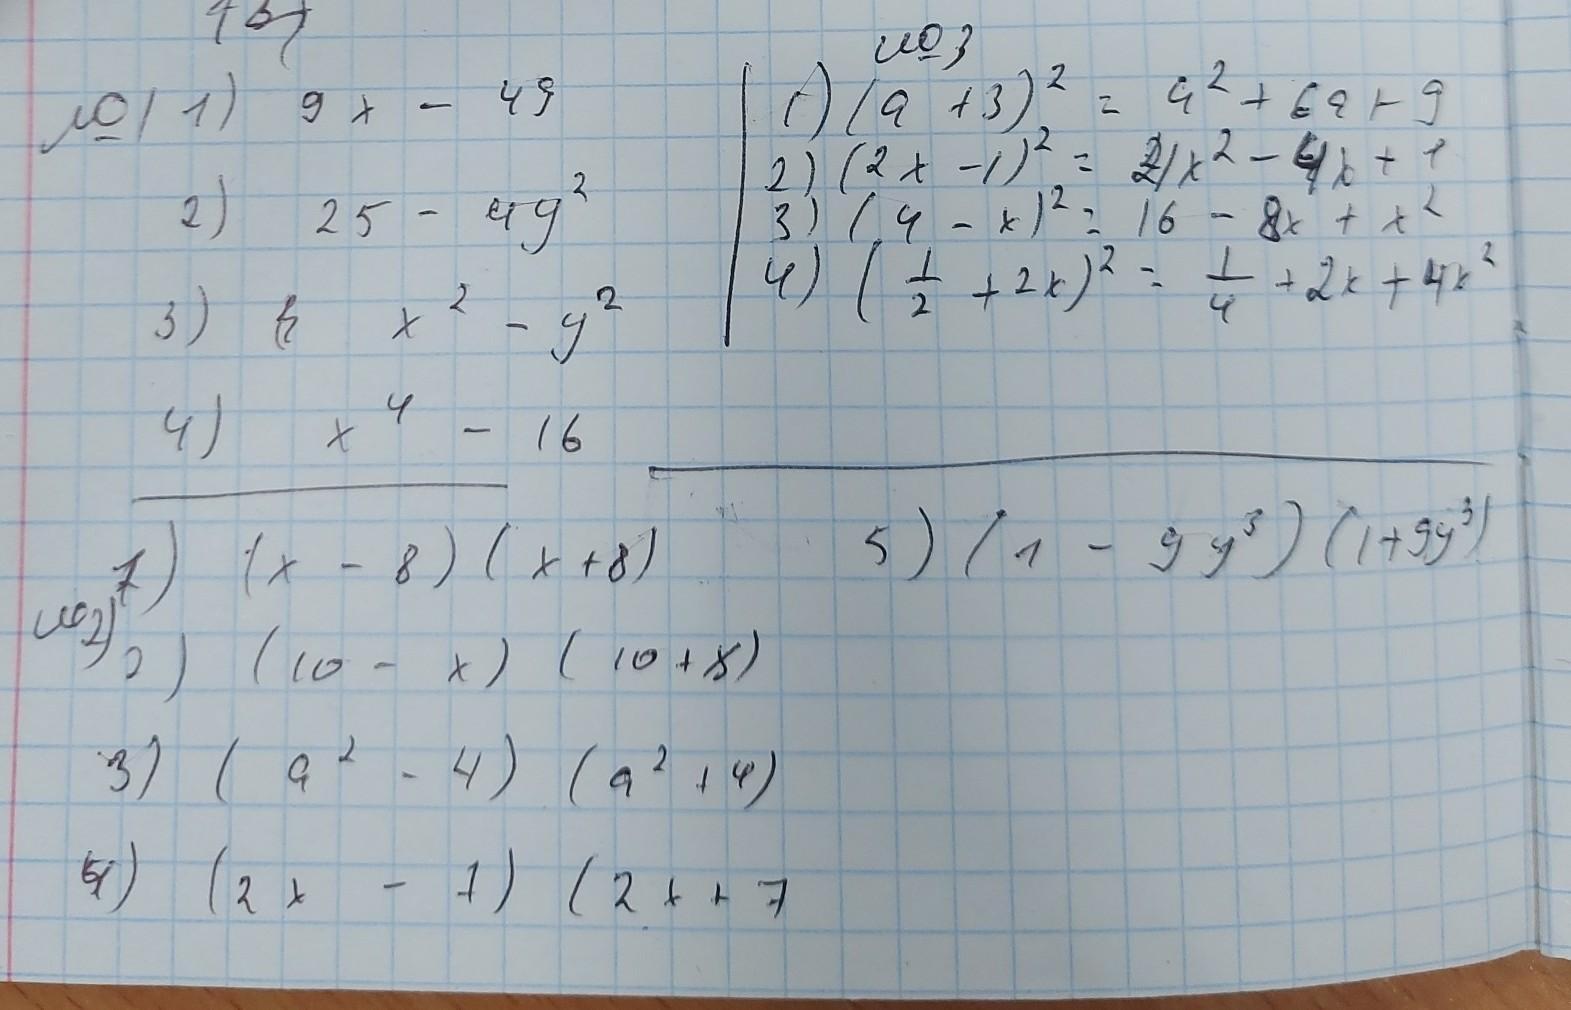 №1 1) 9x - 49
2) 25 - 4y²
3) x² - y²
4) x⁴ - 16
№3
1) (a + 3)² = a² + 6a + 9
2) (2x - 1)² = 4x² - 4x + 1
3) (4 - x)² = 16 - 8x + x²
4) (1/2 + 2x)² = 1/4 + 2x + 4x²
№2) 1) (x - 8) (x + 8)
2) (10 - x) (10 + x)
3) (a² - 4) (a² + 4)
4) (2x - 7) (2x + 7
5) (1 - 9y³) (1 + 9y³)